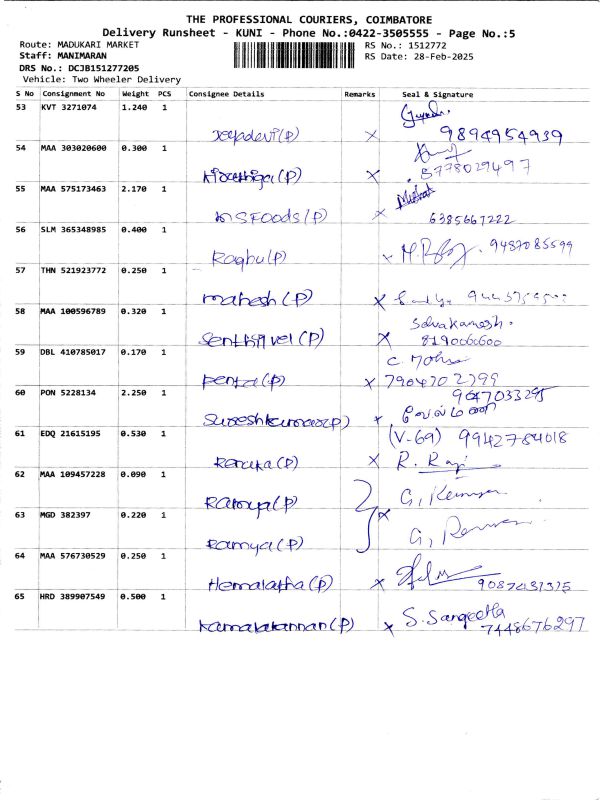 THE PROFESSIONAL COURIERS, COIMBATORE
Delivery Runsheet - KUNI - Phone No.:0422-3505555 - Page No.:5
Route: MADUKARI MARKET RS No.: 1512772
Staff: MANIMARAN RS Date: 28-Feb-2025
DRS No.: DCJB151277205
Vehicle: Two Wheeler Delivery
S No Consignment No Weight PCS Consignee Details Remarks Seal & Signature
53 KVT 3271074 1.240 1
Jeyadevi(P) x 9894954939
54 MAA 303020600 0.300 1
(P) x 8778029497
55 MAA 575173463 2.170 1
KNSFoods(P) x 6385667222
56 SLM 365348985 0.400 1
Raghu(P) x 9487085599
57 THN 521923772 0.250 1
mahesh(P) x
58 MAA 100596789 0.320 1
Selvakamesh.
Senthilvel(P) x 819060600
59 DBL 410785017 0.170 1
C. Mohan
Penta(P) x 7904702799
60 PON 5228134 2.250 1
9047033295
Sureshkumar(P) x வேல்மணி
61 EDQ 21615195 0.530 1
(V-69) 9942784018
Renuka(P) x R. Raji
62 MAA 109457228 0.090 1
Ramya(P) x G,
63 MGD 382397 0.220 1
Ramya(P) G,
64 MAA 576730529 0.250 1
Hemalatha(P) x 9087431375
65 HRD 389907549 0.500 1
Kamalakannan(P) x S. Sangeetha
7448676297